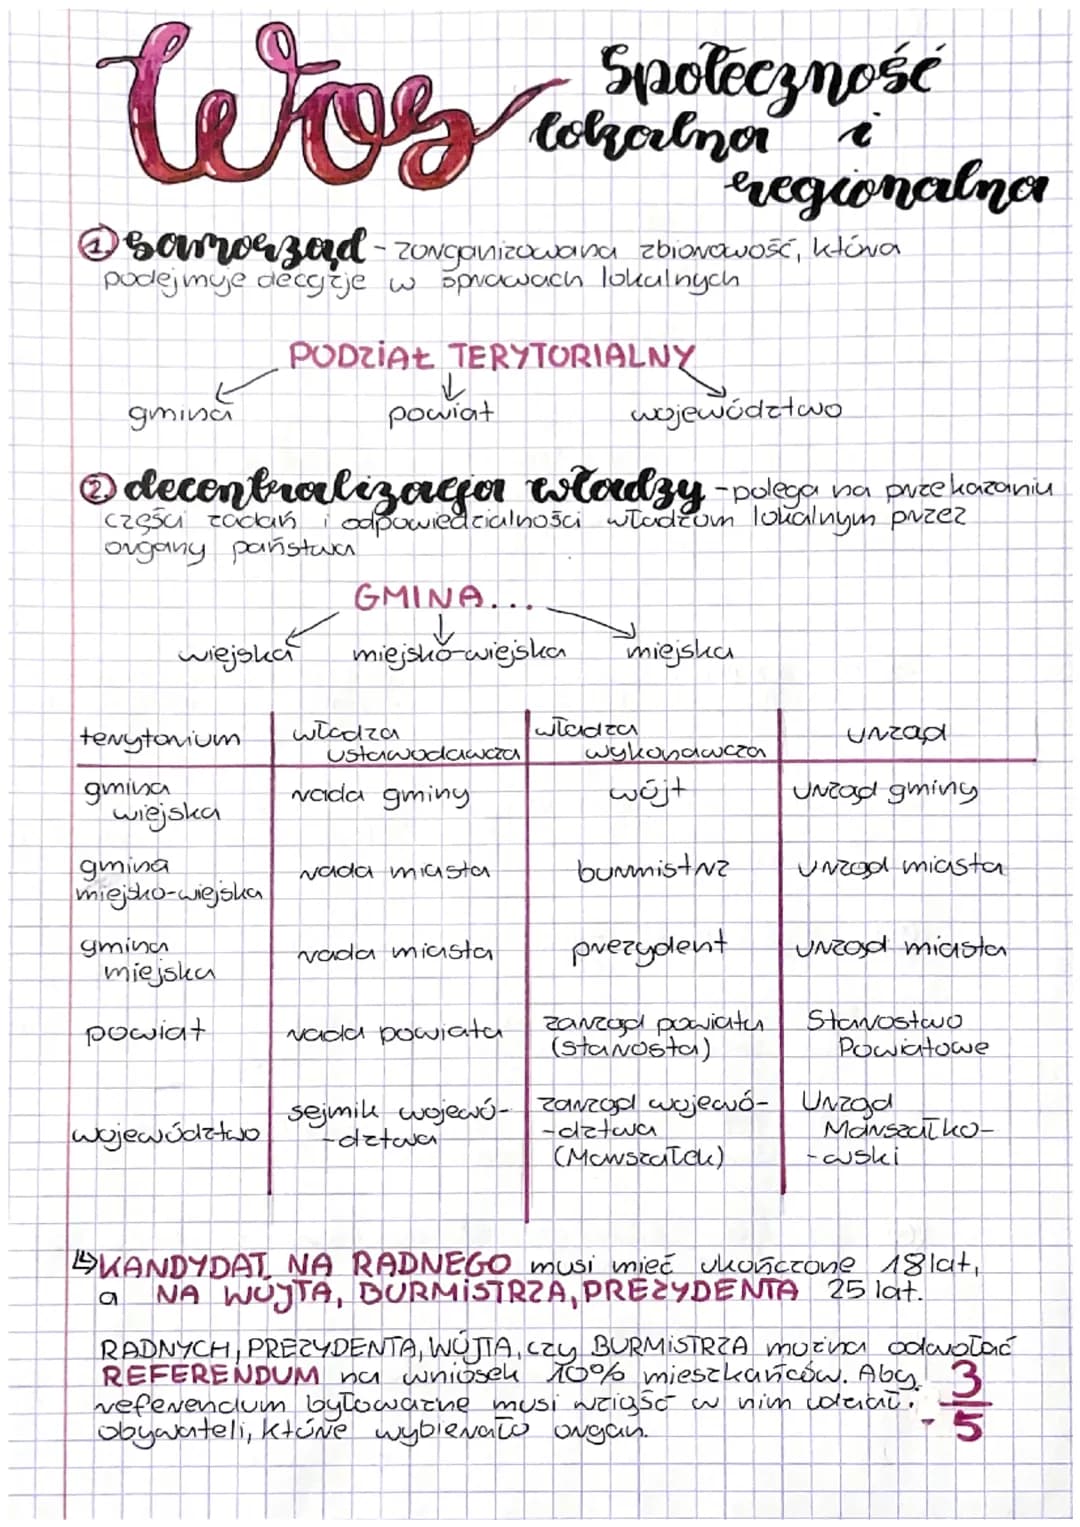 Wos
Społeczność
lokalna i
regionalna
① samorząd - zorganizowana zbiorowość, która
podejmuje decyzje w sprawach lokalnych
PODZIAŁ TERYTORIALNY
gmina powiat województwo
② decentralizacja władzy - polega na przekazaniu
części zadań i odpowiedzialności władzom lokalnym przez
organy państwa
GMINA...
wiejska miejsko-wiejska miejska
terytorium władza władza urząd
ustawodawcza wykonawcza
gmina rada gminy wójt urząd gminy
wiejska
gmina rada miasta burmistrz urząd miasta
miejsko-wiejska
gmina rada miasta prezydent urząd miasta
miejska
powiat rada powiatu zarząd powiatu Starostwo
(starosta) Powiatowe
województwo sejmik wojewó- zarząd wojewó- Urząd
-dztwa -dztwa Marszałko-
(Marszałek) -wski
↳ KANDYDAT NA RADNEGO musi mieć ukończone 18 lat,
a NA WÓJTA, BURMISTRZA, PREZYDENTA 25 lat.
RADNYCH, PREZYDENTA, WÓJTA, czy BURMISTRZA można odwołać
REFERENDUM na wniosek 10% mieszkańców. Aby
referendum było ważne musi wziąść w nim udział. - 3/5
obywateli, które wybierało organ.